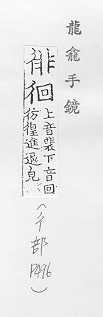 龍龕手鏡
徘徊
上音裴下音回
彷徨進退皃
(彳部
P496)